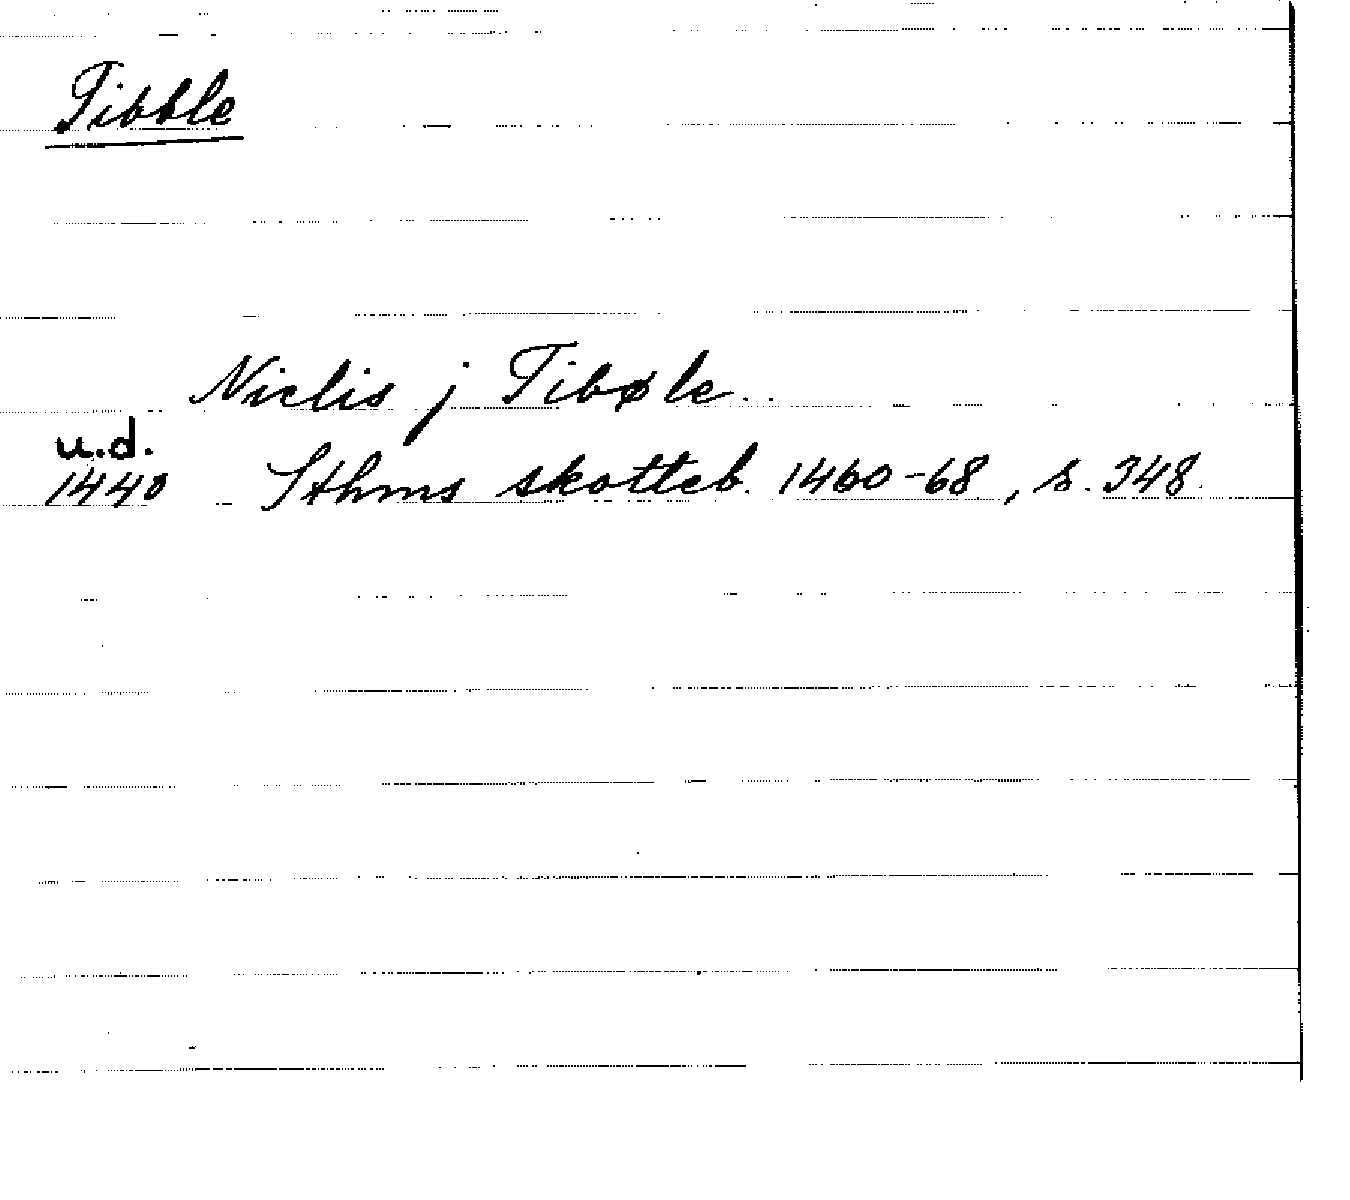 Tibble
Niclis j Tibøle..
u.d.
1440 Sthms skotteb. 1460-68, s. 348.